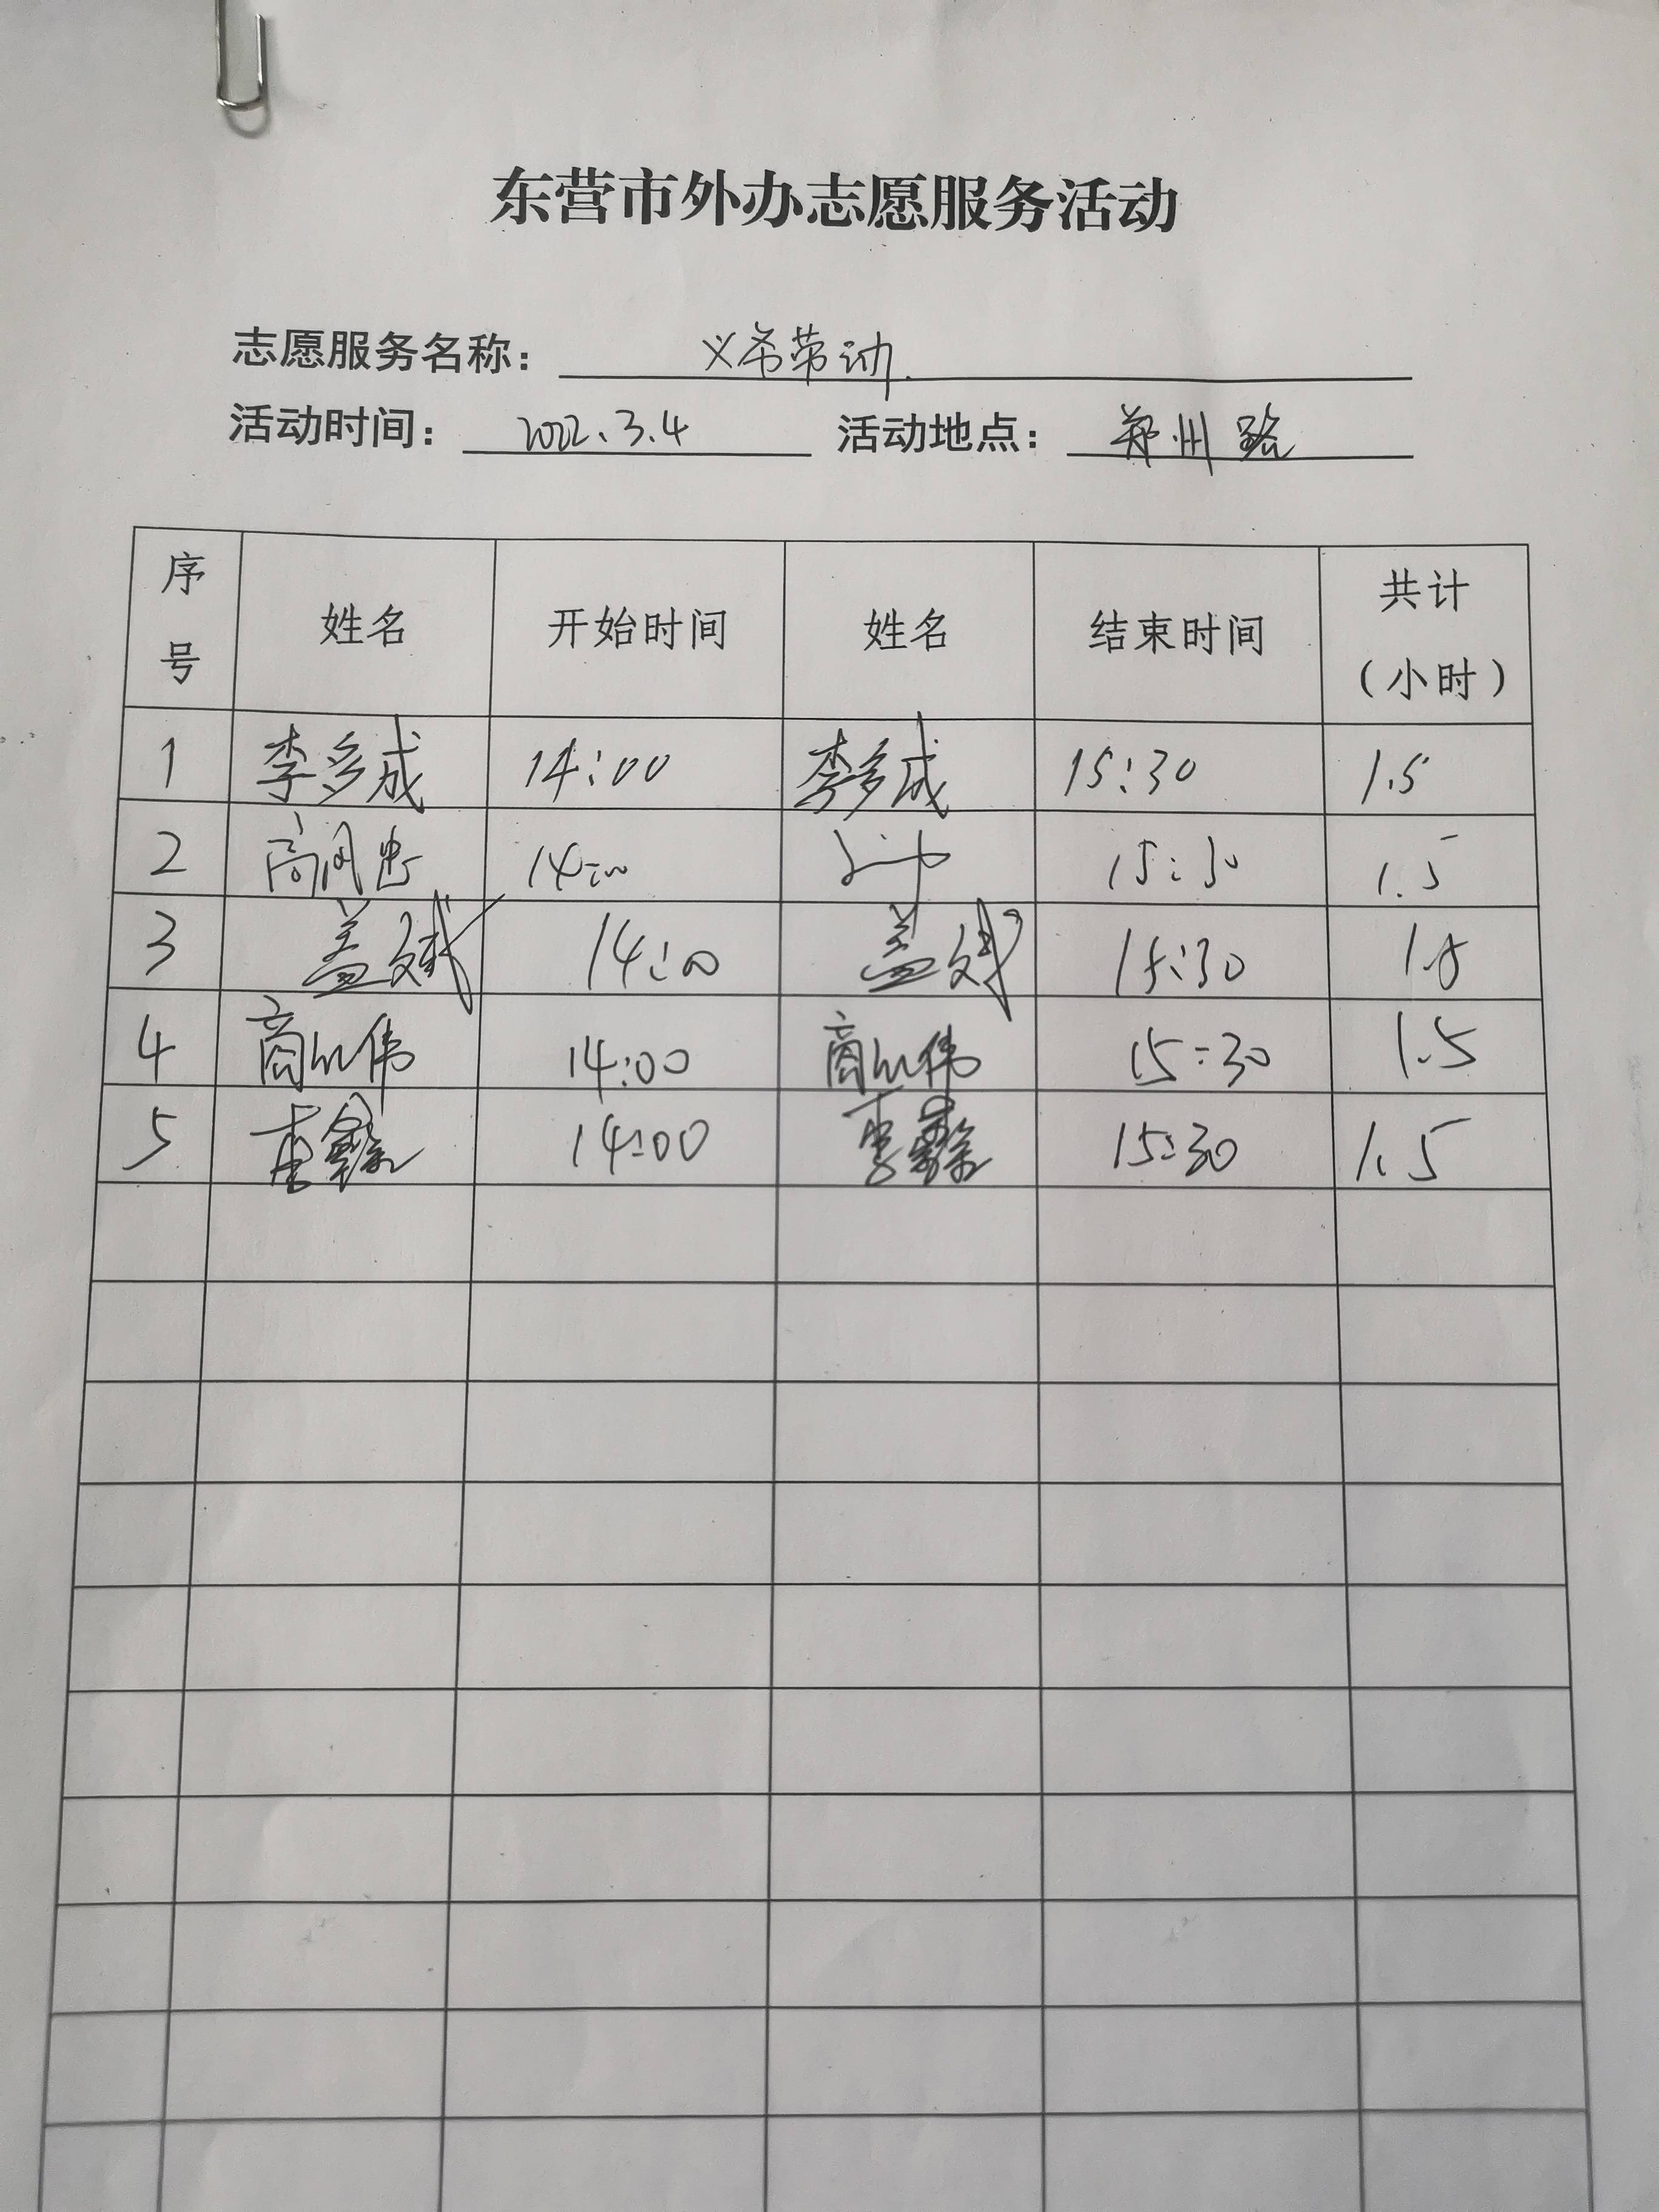 东营市外办志愿服务活动
志愿服务名称： 义务劳动
活动时间： 2022.3.4 活动地点： 郑州路
序号 姓名 开始时间 姓名 结束时间 共计（小时）
1 李多成 14:00 李多成 15:30 1.5
2 14:00 15:30 1.5
3 盖斌 14:00 盖斌 15:30 1.5
4 14:00 15:30 1.5
5 李鑫 14:00 李鑫 15:30 1.5